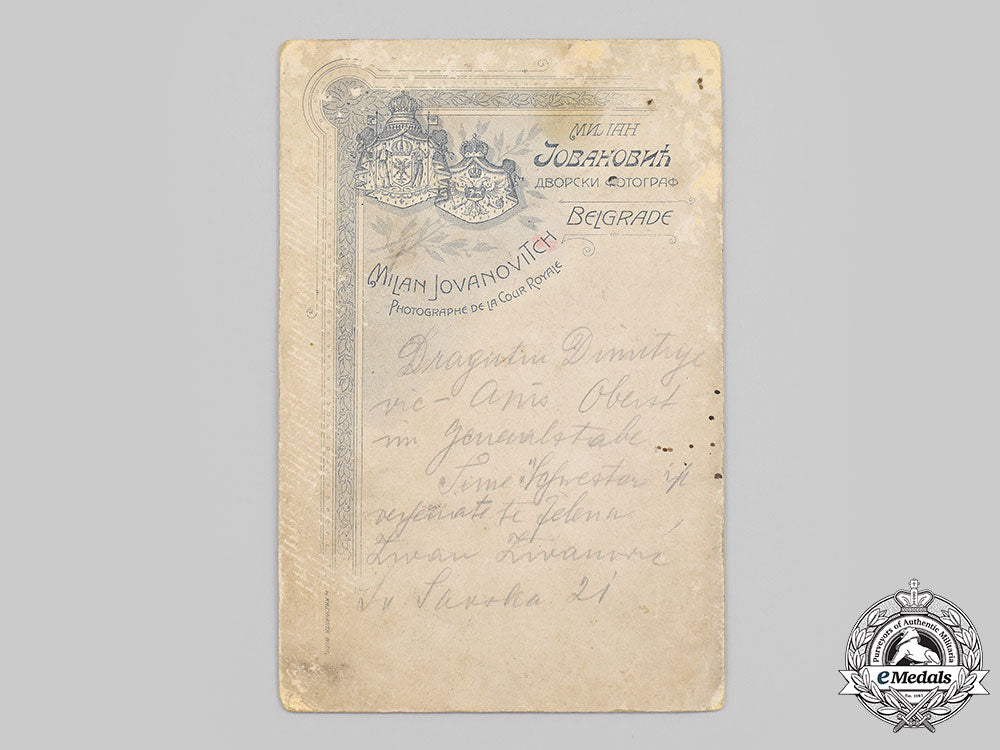 МИЛАН
ЈОВАНОВИЋ
ДВОРСКИ ФОТОГРАФ
BELGRADE
MILAN JOVANOVITCH
PHOTOGRAPHE DE LA COUR ROYALE
Dragutin Dimitrije
vic - Apis. Oberst
im Generalstabe
Seine Schwester ist
verheiratete Jelena
Živan Živanović
Savska 21
Purveyors of Authentic Militaria
eMedals